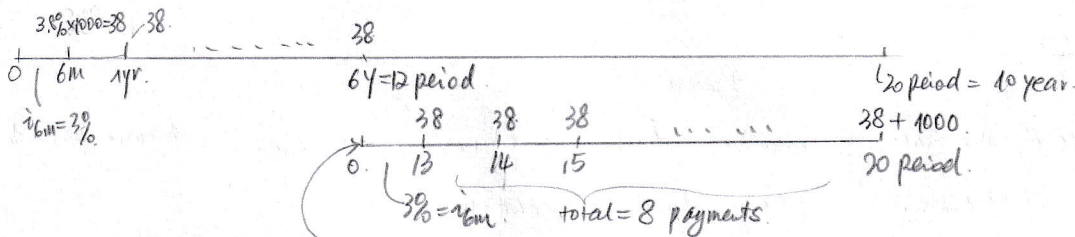 3.8%×1000=38 38. ........ 38
0 6m 1yr. 6Y=12 period 20 period = 10 year.
i6m=3%
38 38 38 ........ 38 + 1000.
0. 13 14 15 20 period.
3% = i6m total = 8 payments.